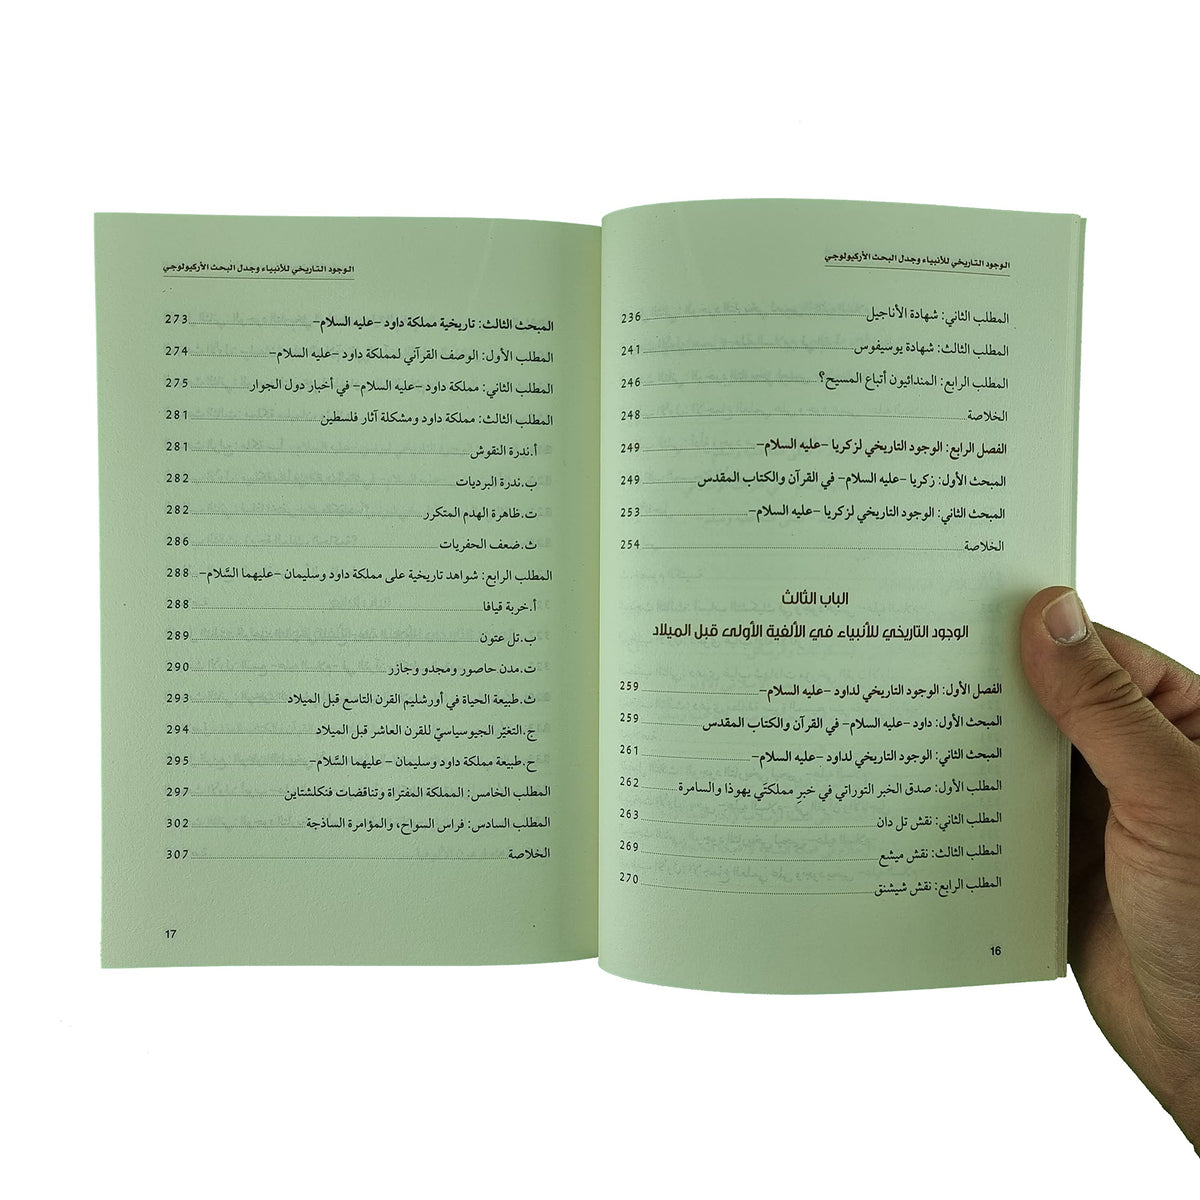 الوجود التاريخي للأنبياء وجدل البحث الأركيولوجي
المطلب الثاني: شهادة الأناجيل 236
المطلب الثالث: شهادة يوسيفوس 241
المطلب الرابع: المندائيون أتباع المسيح؟ 246
الخلاصة 248
الفصل الرابع: الوجود التاريخي لزكريا –عليه السلام– 249
المبحث الأول: زكريا –عليه السلام– في القرآن والكتاب المقدس 249
المبحث الثاني: الوجود التاريخي لزكريا –عليه السلام– 253
الخلاصة 254
الباب الثالث
الوجود التاريخي للأنبياء في الألفية الأولى قبل الميلاد
الفصل الأول: الوجود التاريخي لداود –عليه السلام– 259
المبحث الأول: داود –عليه السلام– في القرآن والكتاب المقدس 259
المبحث الثاني: الوجود التاريخي لداود –عليه السلام– 261
المطلب الأول: صدق الخبر التوراتي في خبرِ مملكتَي يهوذا والسامرة 262
المطلب الثاني: نقش تل دان 263
المطلب الثالث: نقش ميشع 269
المطلب الرابع: نقش شيشنق 270
16
الوجود التاريخي للأنبياء وجدل البحث الأركيولوجي
المبحث الثالث: تاريخية مملكة داود –عليه السلام– 273
المطلب الأول: الوصف القرآني لمملكة داود –عليه السلام– 274
المطلب الثاني: مملكة داود –عليه السلام– في أخبار دول الجوار 275
المطلب الثالث: مملكة داود ومشكلة آثار فلسطين 281
أ.ندرة النقوش 281
ب.ندرة البرديات 282
ت.ظاهرة الهدم المتكرر 282
ث.ضعف الحفريات 286
المطلب الرابع: شواهد تاريخية على مملكة داود وسليمان –عليهما السَّلام– 288
أ.خربة قيافا 288
ب.تل عتون 289
ت.مدن حاصور ومجدو وجازر 290
ث.طبيعة الحياة في أورشليم القرن التاسع قبل الميلاد 293
ج.التغيّر الجيوسياسيّ للقرن العاشر قبل الميلاد 294
ح.طبيعة مملكة داود وسليمان – عليهما السَّلام– 295
المطلب الخامس: المملكة المفتراة وتناقضات فنكلشتاين 297
المطلب السادس: فراس السواح، والمؤامرة الساذجة 302
الخلاصة 307
17